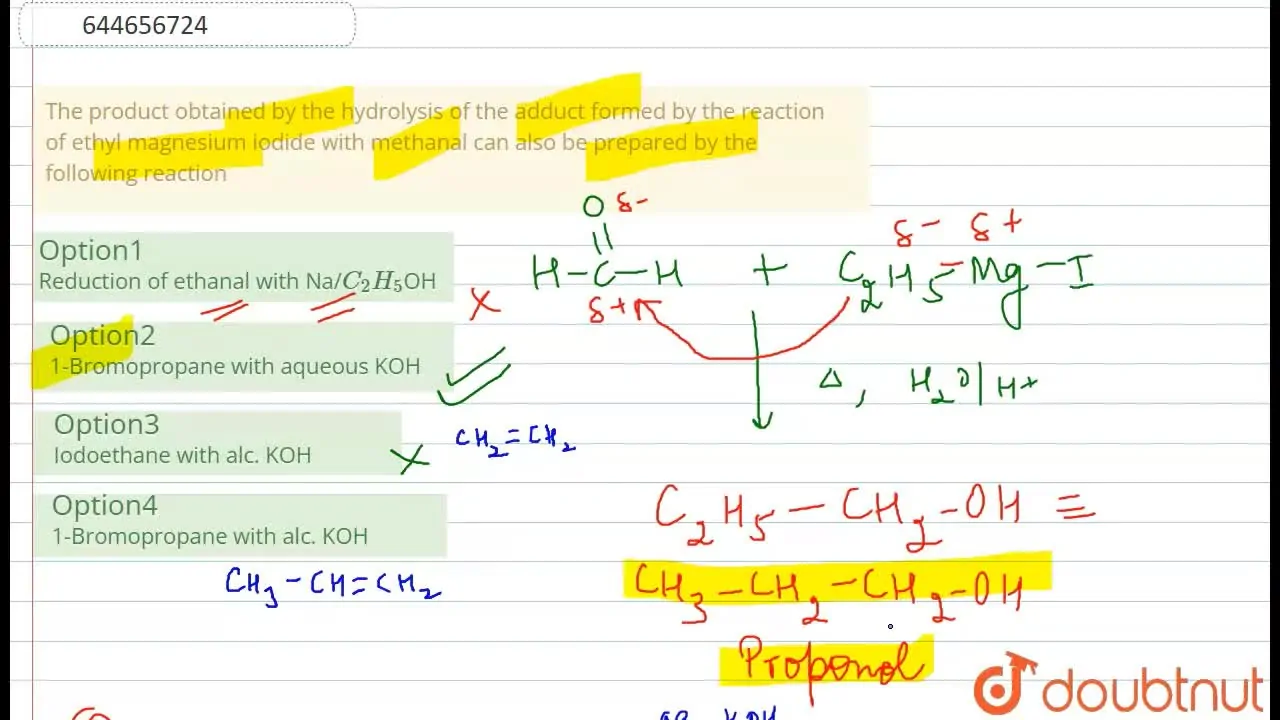 644656724
The product obtained by the hydrolysis of the adduct formed by the reaction
of ethyl magnesium iodide with methanal can also be prepared by the
following reaction
Option1
Reduction of ethanal with Na/C₂H₅OH
Option2
1-Bromopropane with aqueous KOH
Option3
Iodoethane with alc. KOH
CH₂=CH₂
Option4
1-Bromopropane with alc. KOH
CH₃-CH=CH₂
O δ-
||
H-C-H + C₂H₅-Mg-I
δ+
δ- δ+
Δ, H₂O/H+
C₂H₅-CH₂-OH =
CH₃-CH₂-CH₂-OH
Proponol
KOH
doubtnut